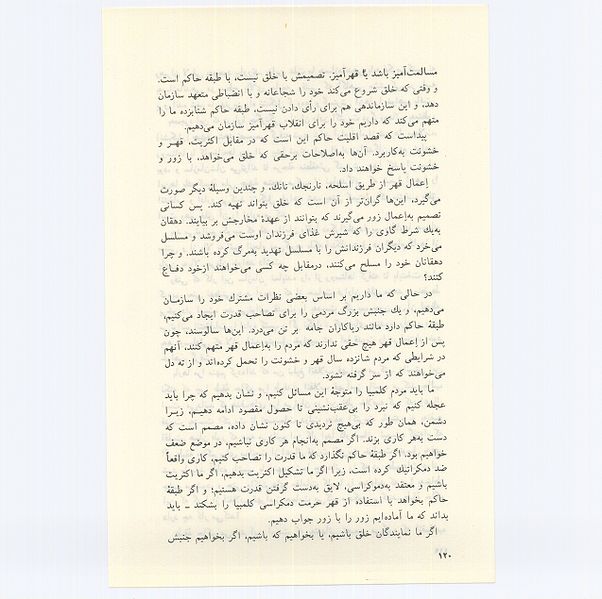 مسالمت‌آمیز باشد یا قهرآمیز، تصمیمش با خلق نیست، با طبقه حاکم است.
و وقتی که خلق شروع می‌کند خود را شجاعانه و با انضباطی متعهد سازمان
دهد، و این سازماندهی هم برای رأی دادن نیست، طبقه حاکم شتابزده ما را
متهم می‌کند که داریم خود را برای انقلاب قهرآمیز سازمان می‌دهیم.
پیداست که قصد اقلیت حاکم این است که در مقابل اکثریت، قهـر و
خشونت به‌کاربرد. آن‌ها به‌اصلاحات برحقی که خلق می‌خواهد، با زور و
خشونت پاسخ خواهند داد.
إعمال قهر از طریق اسلحه، نارنجك، تانك، و چندین وسیلۀ دیگر صورت
می‌گیرد، این‌ها گران‌تر از آن است که خلق بتواند تهیه کند. پس کسانی
تصمیم به‌إعمال زور می‌گیرند که بتوانند از عهدۀ مخارجش بر بیایند. دهقان
به‌یك شرط گاوی را که شیرش غذای فرزندان اوست می‌فروشد و مسلسل
می‌خرد که دیگران فرزندانش را با مسلسل تهدید به‌مرگ کرده باشند. و چرا
دهقانان خود را مسلح می‌کنند، درمقابل چه کسی می‌خواهند ازخود دفـاع
کنند؟
در حالی که ما داریم بر اساس بعضی نظرات مشترك خود را سازمـان
می‌دهیم، و یك جنبش بزرگ مردمی را برای تصاحب قدرت ایجاد می‌کنیم،
طبقۀ حاکم دارد مانند ریاکاران جامه بر تن می‌درد. این‌ها سالوسند، چون
پس از إعمال قهر هیچ حقی ندارند که مردم را به‌إعمال قهر متهم کنند، آنهم
در شرایطی که مردم شانزده سال قهر و خشونت را تحمل کرده‌اند و از ته دل
می‌خواهند که از سر گرفته نشود.
ما باید مردم کلمبیا را متوجۀ این مسائل کنیم، و نشان بدهیم که چرا باید
عجله کنیم که نبرد را بی‌عقب‌نشینی تا حصول مقصود ادامه دهیـم، زیـرا
دشمن، همان طور که بی‌هیچ تردیدی تا کنون نشان داده، مصمم است که
دست به‌هر کاری بزند. اگر مصمم به‌انجام هر کاری نباشیم، در موضع ضعف
خواهیم بود. اگر طبقۀ حاکم نگذارد که ما قدرت را تصاحب کنیم، کاری واقعاً
ضد دمکراتیك کرده است، زیرا اگر ما تشکیل اکثریت بدهیم، اگر ما اکثریت
باشیم و معتقد به‌دموکراسی، لایق به‌دست گرفتن قدرت هستیم؛ و اگر طبقۀ
حاکم بخواهد با استفاده از قهر حرمت دمکراسی کلمبیا را بشکند ــ باید
بداند که ما آماده‌ایم زور را با زور جواب دهیم.
اگر ما نمایندگان خلق باشیم، یا بخواهیم که باشیم، اگر بخواهیم جنبش
۱۲۰